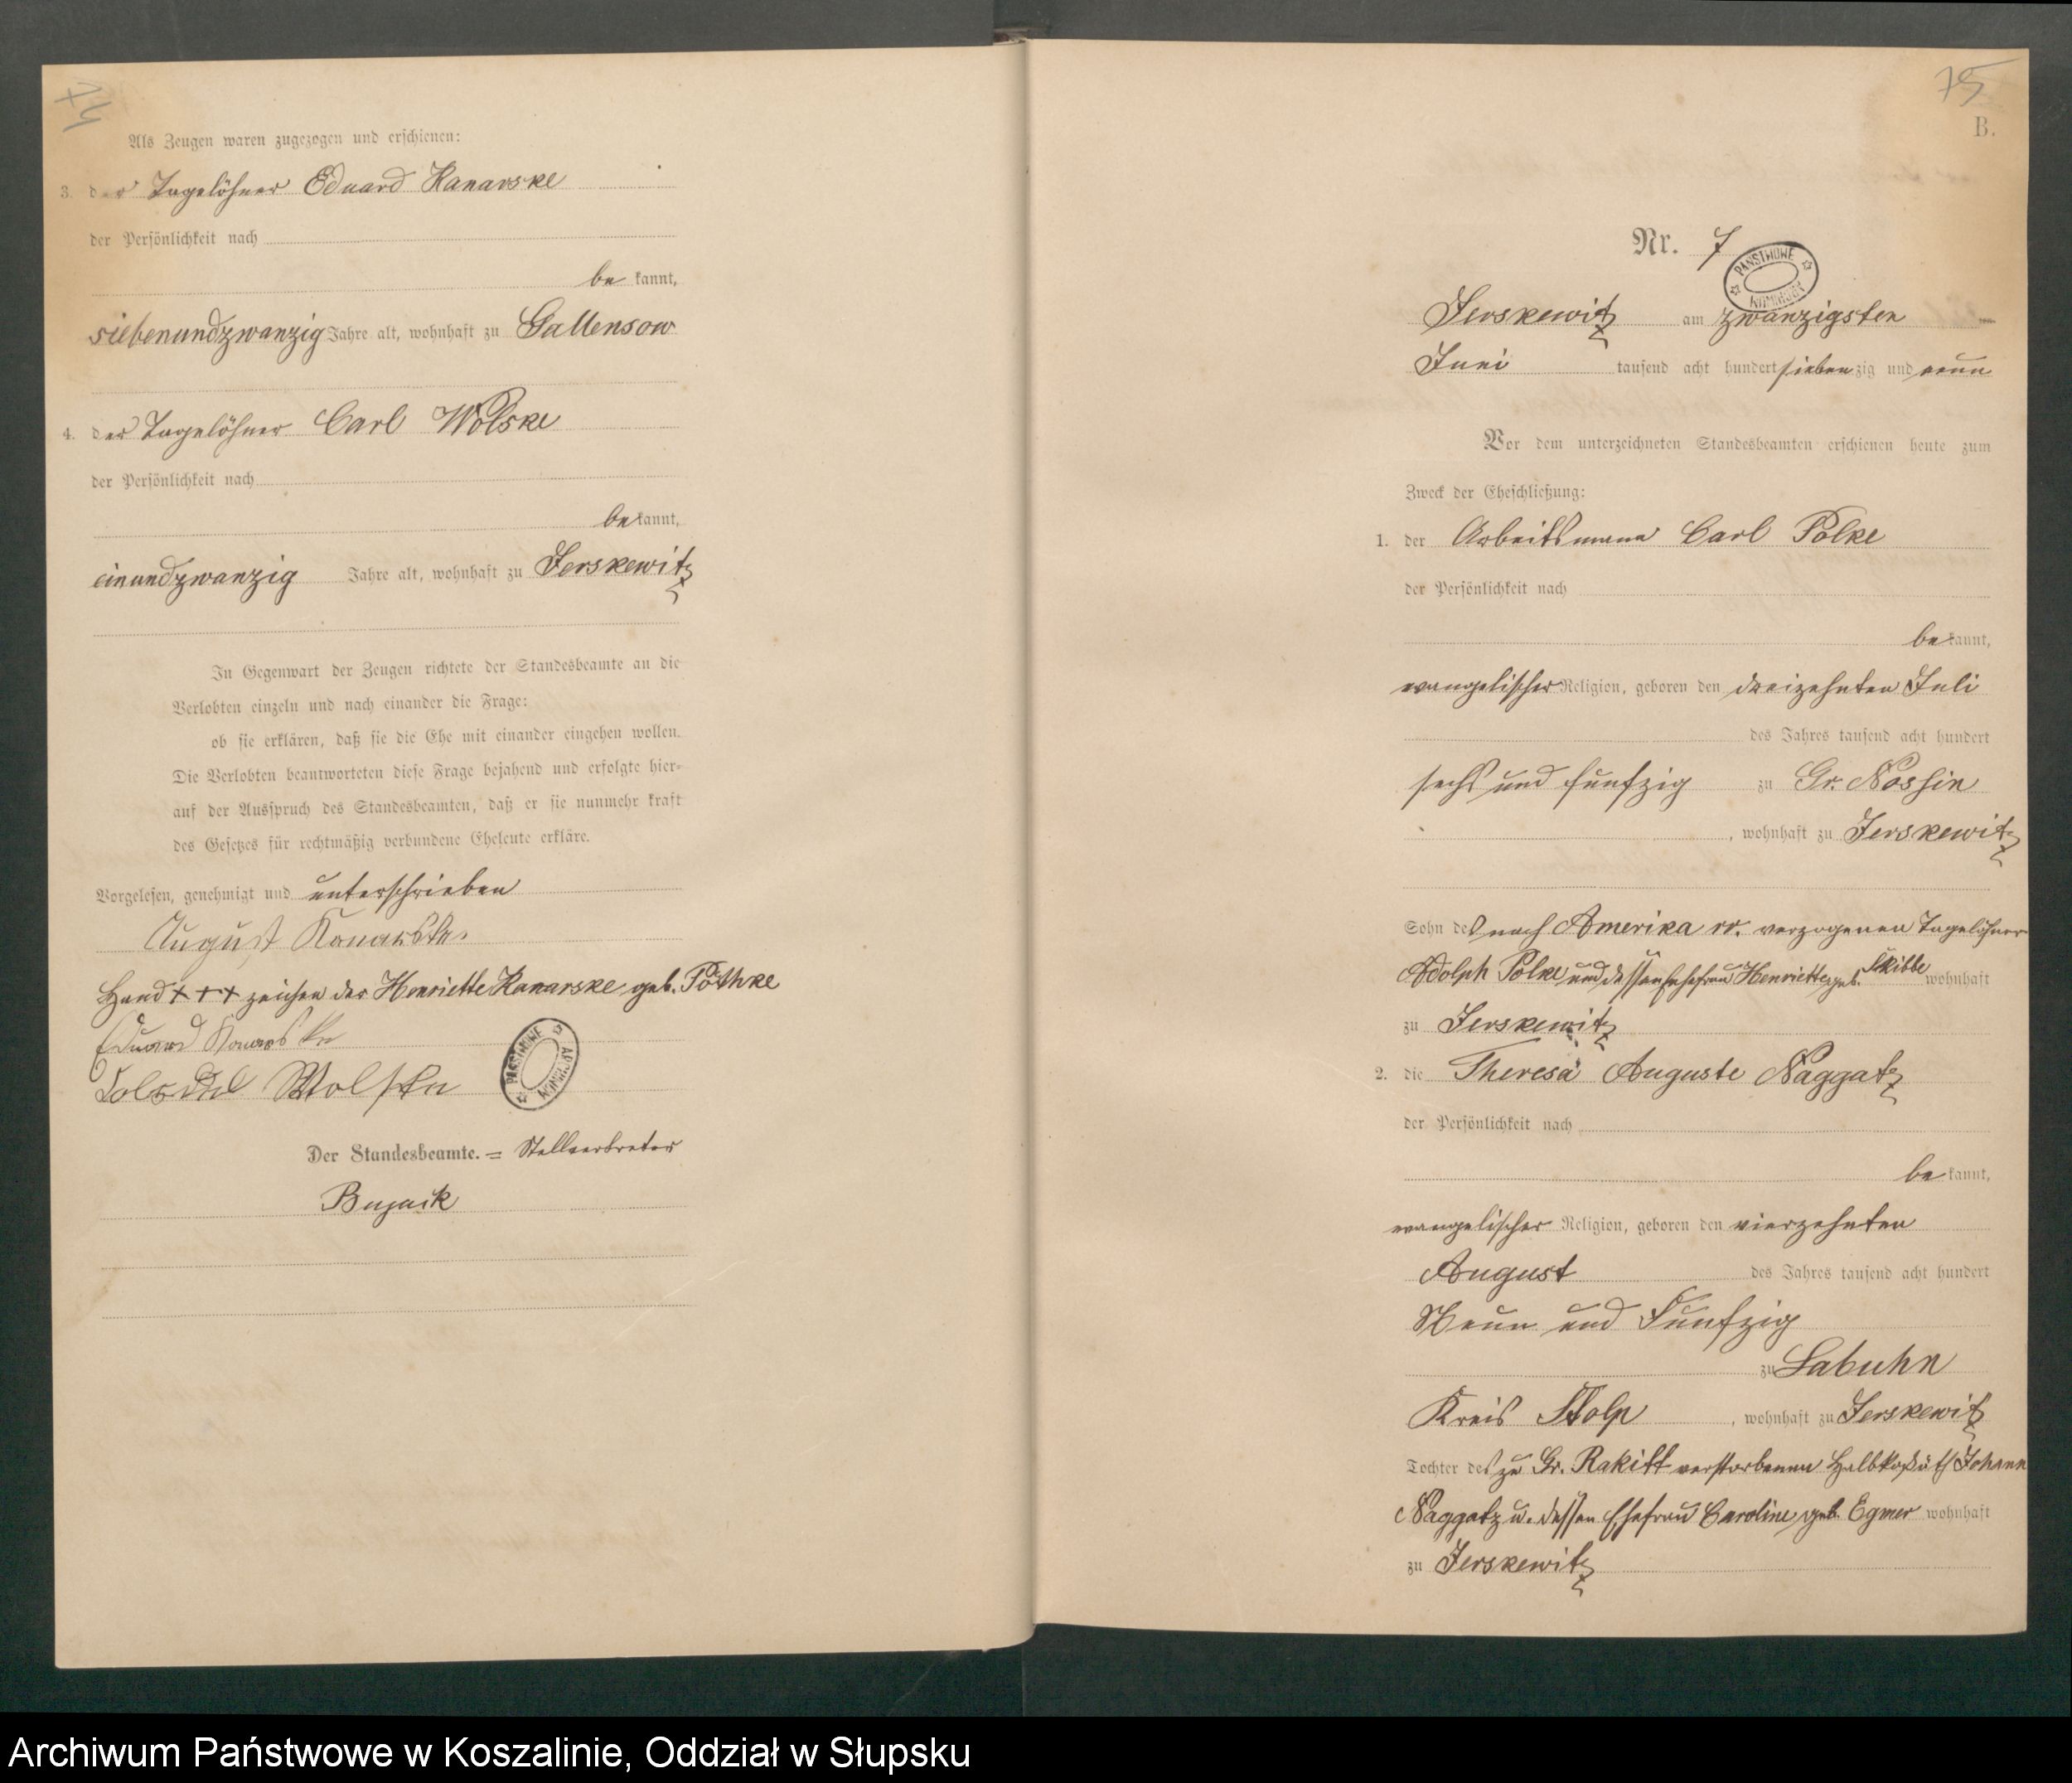 74
Als Zeugen waren zugezogen und erschienen:
3. der Tagelöhner Eduard Kanarske
der Persönlichkeit nach
be kannt,
siebenundzwanzig Jahre alt, wohnhaft zu Gallensow
4. der Tagelöhner Carl Wolske
der Persönlichkeit nach
be kannt,
einundzwanzig Jahre alt, wohnhaft zu Jerskewitz
In Gegenwart der Zeugen richtete der Standesbeamte an die
Verlobten einzeln und nach einander die Frage:
ob sie erklären, daß sie die Ehe mit einander eingehen wollen.
Die Verlobten beantworteten diese Frage bejahend und erfolgte hier-
auf der Ausspruch des Standesbeamten, daß er sie nunmehr kraft
des Gesetzes für rechtmäßig verbundene Eheleute erkläre.
Vorgelesen, genehmigt und unterschrieben
August Kanarske.
Hand +++ zeichen der Henriette Kanarske geb. Pöthke
Eduard Kanarske
Wolske
PAŃSTWOWE ARCHIWUM
Der Standesbeamte. = Stellvertreter
Bujack
75
B.
Nr. 7
PAŃSTWOWE ARCHIWUM
Jerskewitz am zwanzigsten
Juni tausend acht hundert sieben zig und neun
Vor dem unterzeichneten Standesbeamten erschienen heute zum
Zweck der Eheschließung:
1. der Arbeitsmann Carl Polke
der Persönlichkeit nach
be kannt,
evangelischer Religion, geboren den dreizehnten Juli
des Jahres tausend acht hundert
sechs und funfzig zu Gr. Nossin
, wohnhaft zu Jerskewitz
Sohn des nach Amerika verzogenen Tagelöhner
Adolph Polke und dessen Ehefrau Henriette geb. Skibbe wohnhaft
zu Jerskewitz
2. die Theresa Auguste Naggatz
der Persönlichkeit nach
be kannt,
evangelischer Religion, geboren den vierzehnten
August des Jahres tausend acht hundert
Neun und Funfzig
zu Labuhn
Kreis Stolp , wohnhaft zu Jerskewitz
Tochter des zu Gr. Rakitt verstorbenen Halbkoßäth Johann
Naggatz u. dessen Ehefrau Caroline geb. Egmer wohnhaft
zu Jerskewitz
Archiwum Państwowe w Koszalinie, Oddział w Słupsku